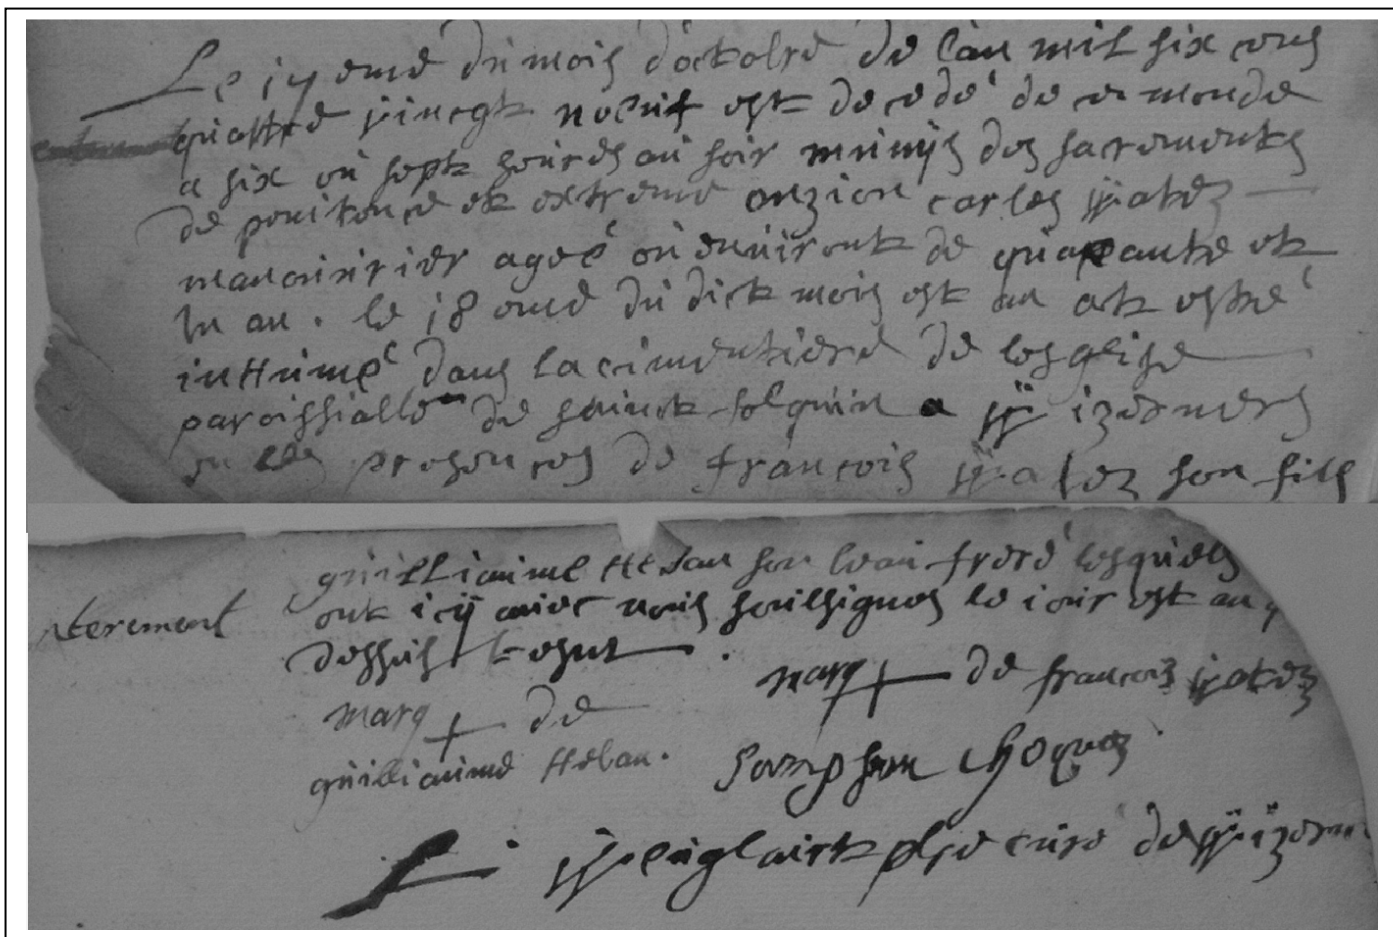 Le 17 eme du mois d'octobre de l'an mil six cens
quattre vincgt noeuf est decedé de ce monde
a six ou sept heures au soir munijs des sacrements
de penitence et extreme onzion carles wattez
manouvrier ageé ou environt de quarante et
un an. le 18 eme du dict mois est an at estré
inttrimé dans la cimentiere de l'esglise
paroissialle de sainct folquin a wizernes
en les presences de francois wattez son fils
guilliaume Heban son beau frere lesquels
ont icÿ avec nous soussignes le iour est an q
dessus
nterement
marq de francois wattez
marq de
guilliaume Heban.
Sampson Choquez
pbre cure de wizern